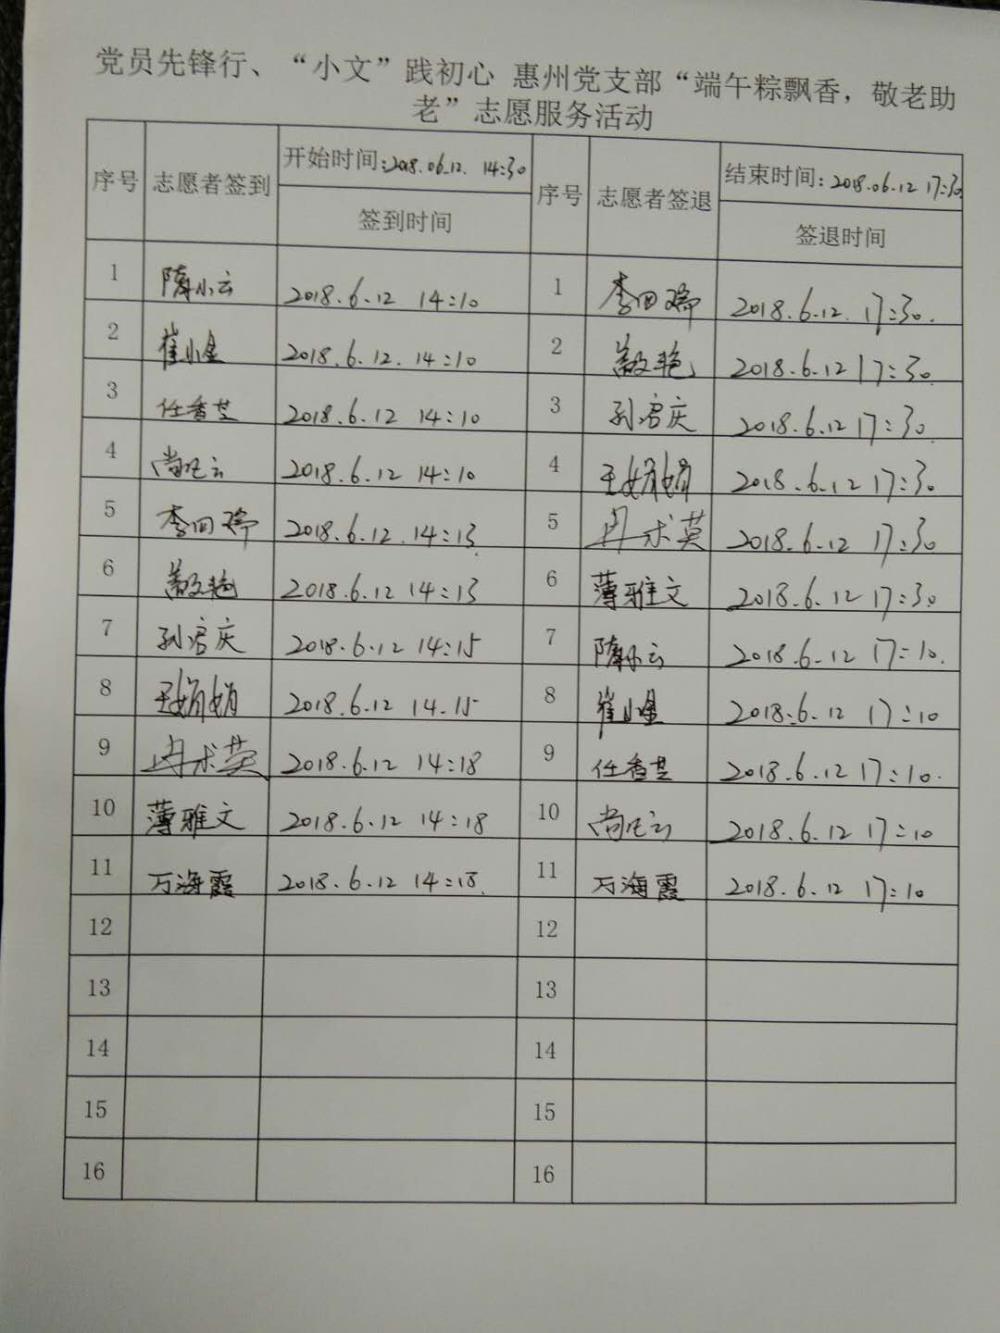 党员先锋行、“小文”践初心 惠州党支部“端午粽飘香，敬老助
老”志愿服务活动
序号 志愿者签到 开始时间:2018.06.12. 14:30 序号 志愿者签退 结束时间:2018.06.12 17:30
签到时间 签退时间
1 隋小云 2018.6.12 14:10 1 李四瑞 2018.6.12. 17:30.
2 崔小金 2018.6.12.14:10 2 2018.6.12 17:30.
3 任香芝 2018.6.12 14:10 3 孙启庆 2018.6.12 17:30.
4 尚云 2018.6.12 14:10 4 王娟娟 2018.6.12 17:30
5 李四瑞 2018.6.12.14:13 5 冉术英 2018.6.12 17:30
6 2018.6.12 14:13 6 薄雅文 2018.6.12 17:30
7 孙启庆 2018.6.12 14:15 7 隋小云 2018.6.12 17:10.
8 王娟娟 2018.6.12 14.15 8 崔小金 2018.6.12 17:10
9 冉术英 2018.6.12 14:18 9 任香芝 2018.6.12 17:10.
10 薄雅文 2018.6.12 14:18 10 尚云 2018.6.12 17:10
11 万海霞 2018.6.12 14:18. 11 万海霞 2018.6.12 17:10
12 12
13 13
14 14
15 15
16 16